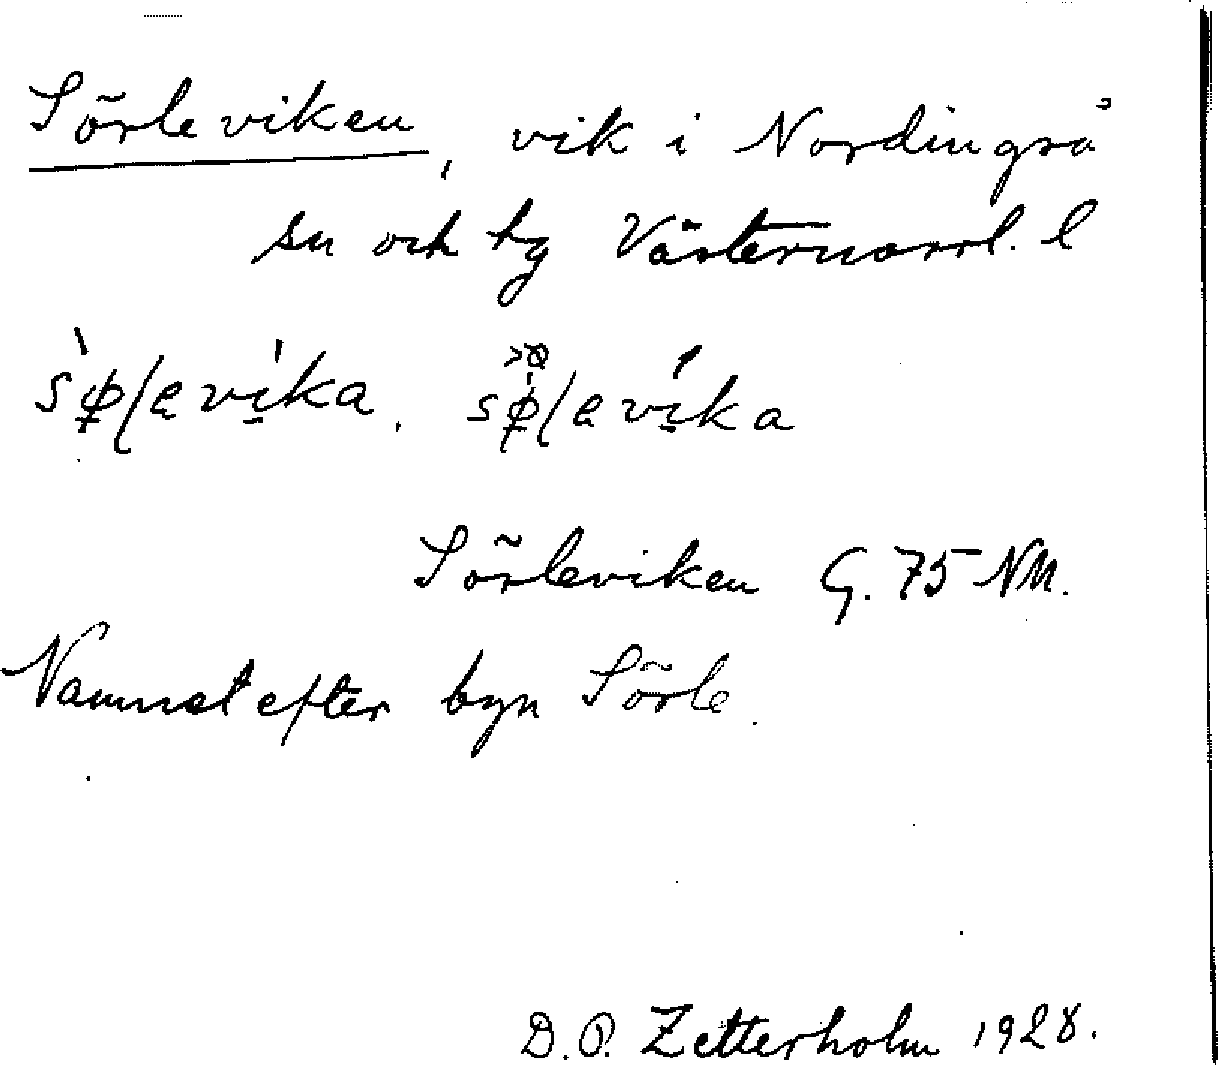 Sörleviken, vik i Nordingrå
sn och tg Västernorrl. l
Sörleviken G. 75 NM.
Namnet efter byn Sörle.
D.O. Zetterholm 1928.